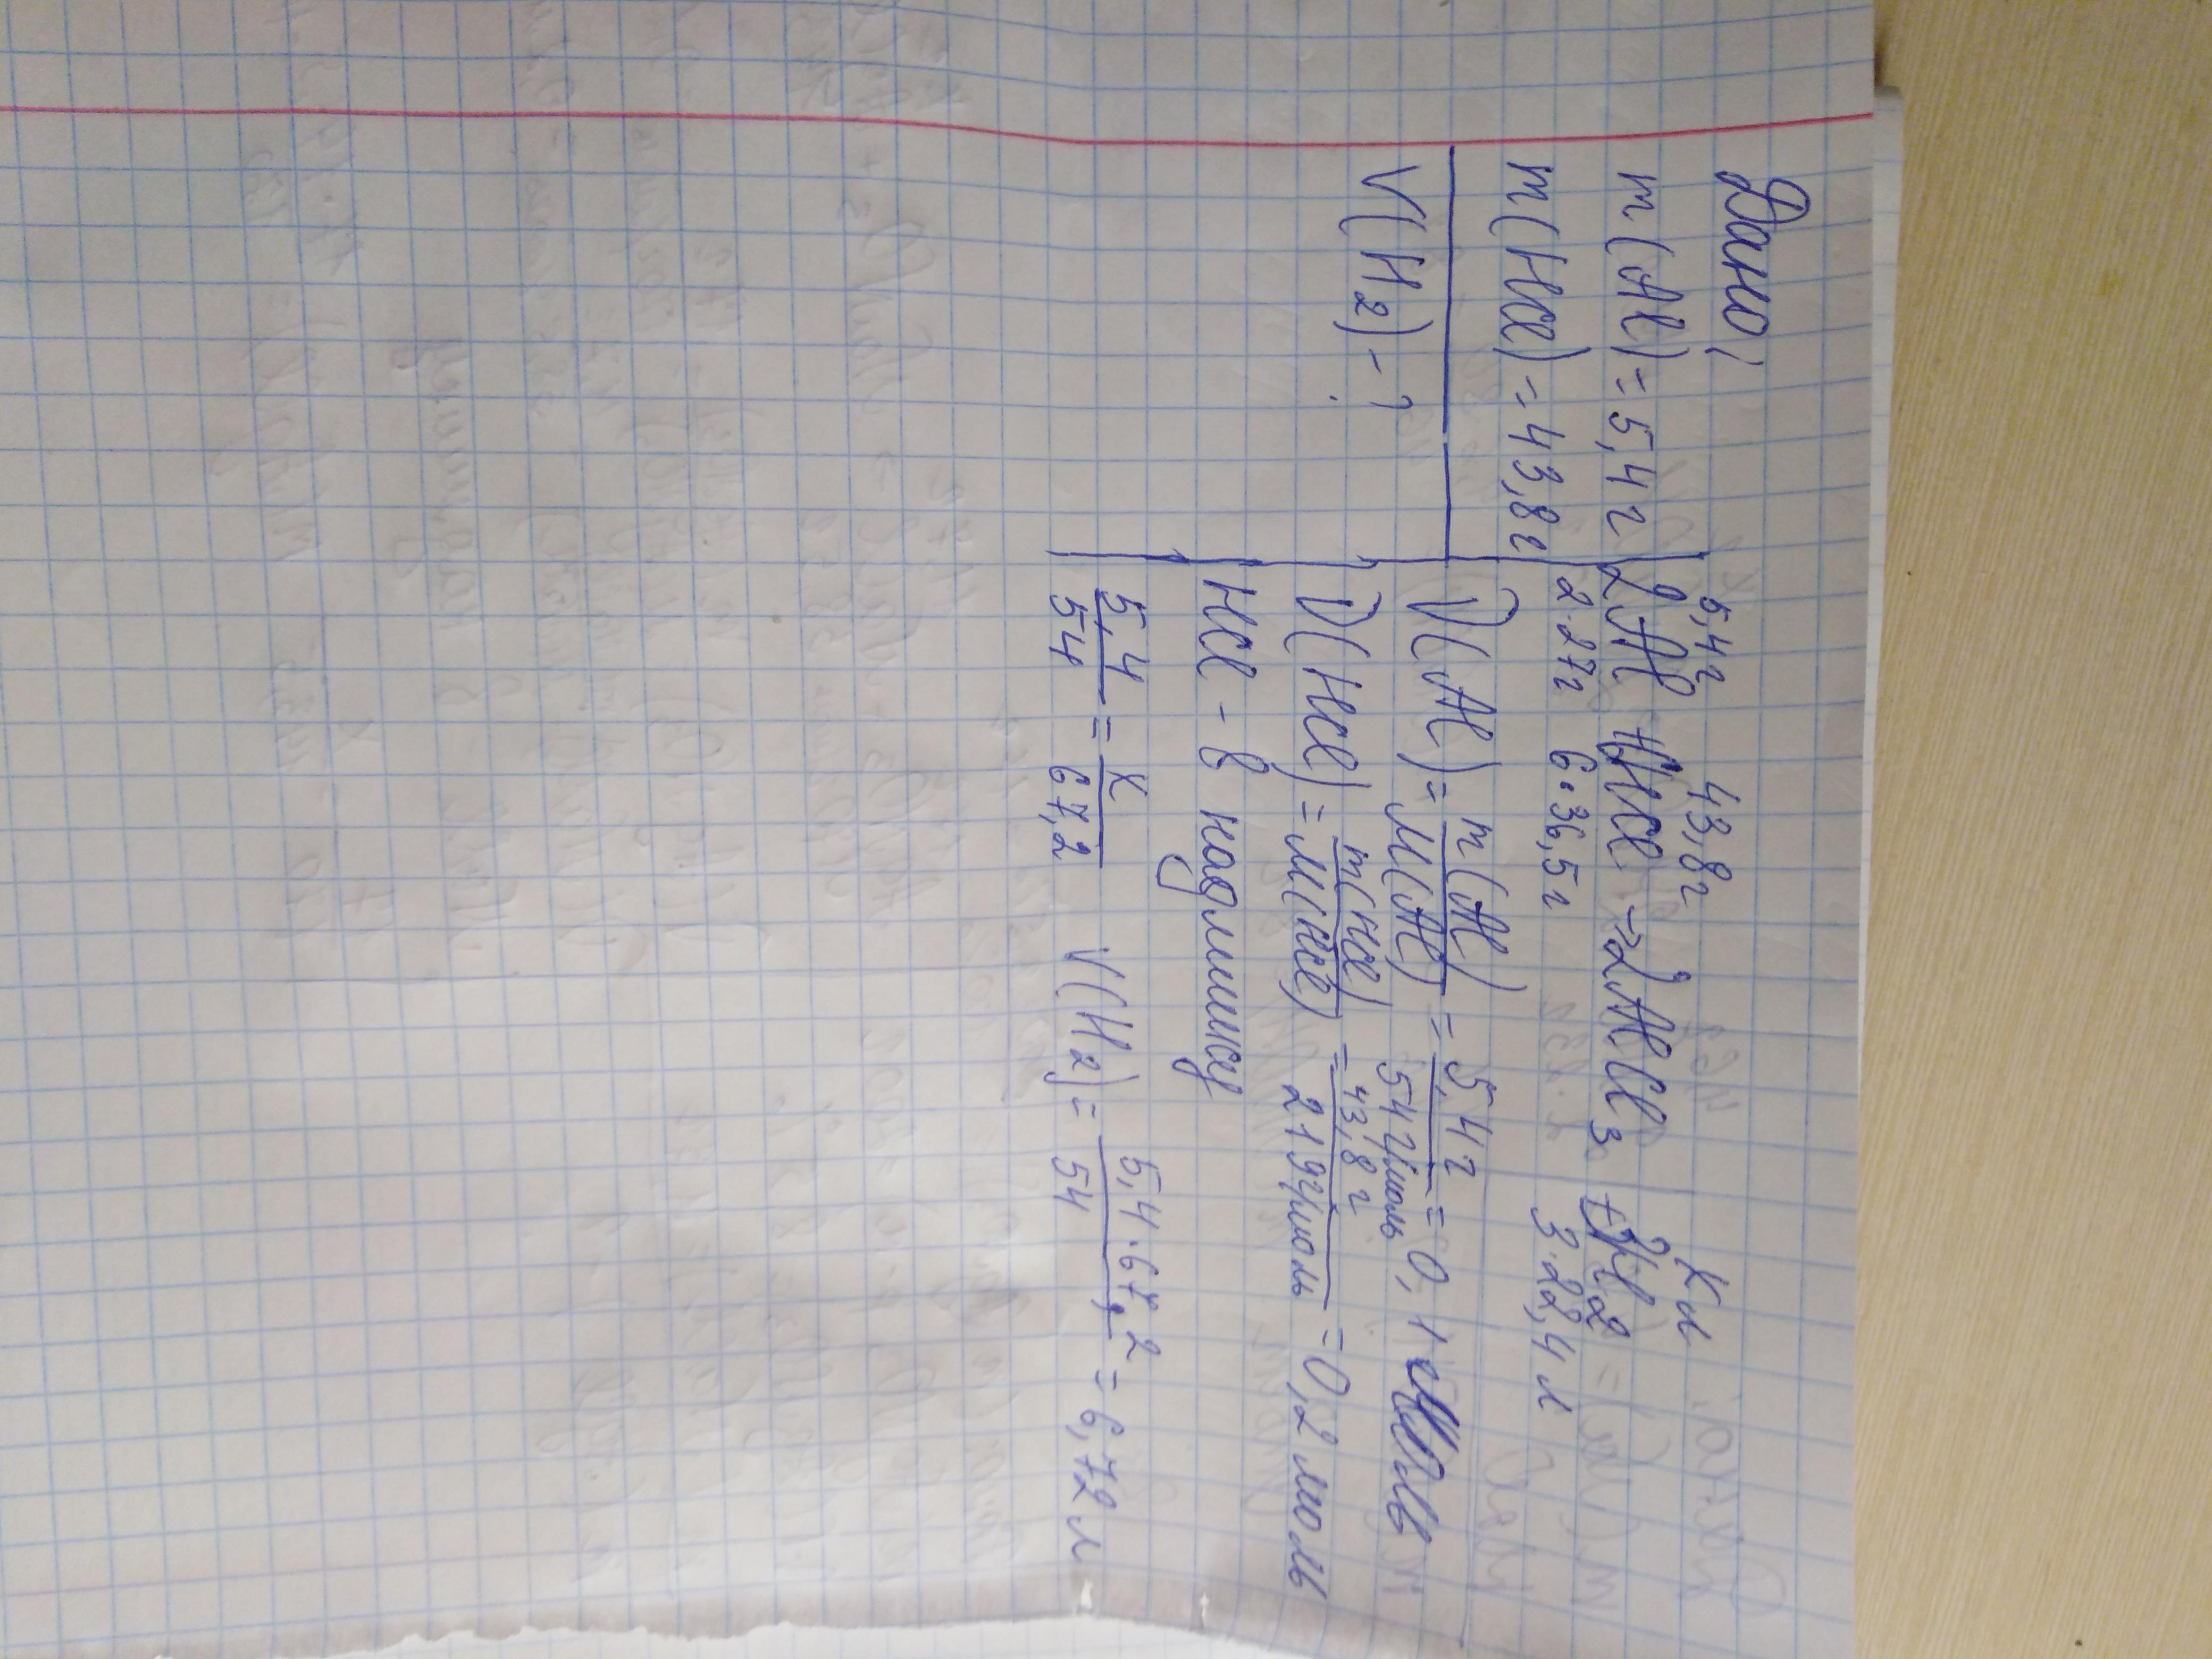 Дано:
m(Al) = 5,4 г
m(HCl) = 43,8 г
V(H2) - ?
5,4г 43,8г X л
2Al + HCl → 2AlCl3 + 3H2
2·27г 6·36,5г 3·22,4 л
ν(Al) = m(Al)/M(Al) = 5,4 г/54 г/моль = 0,1 моль
ν(HCl) = m(HCl)/M(HCl) = 43,8 г/219 г/моль = 0,2 моль
HCl - в надлишку
5,4/54 = x/67,2 V(H2) = 5,4·67,2/54 = 6,72 л